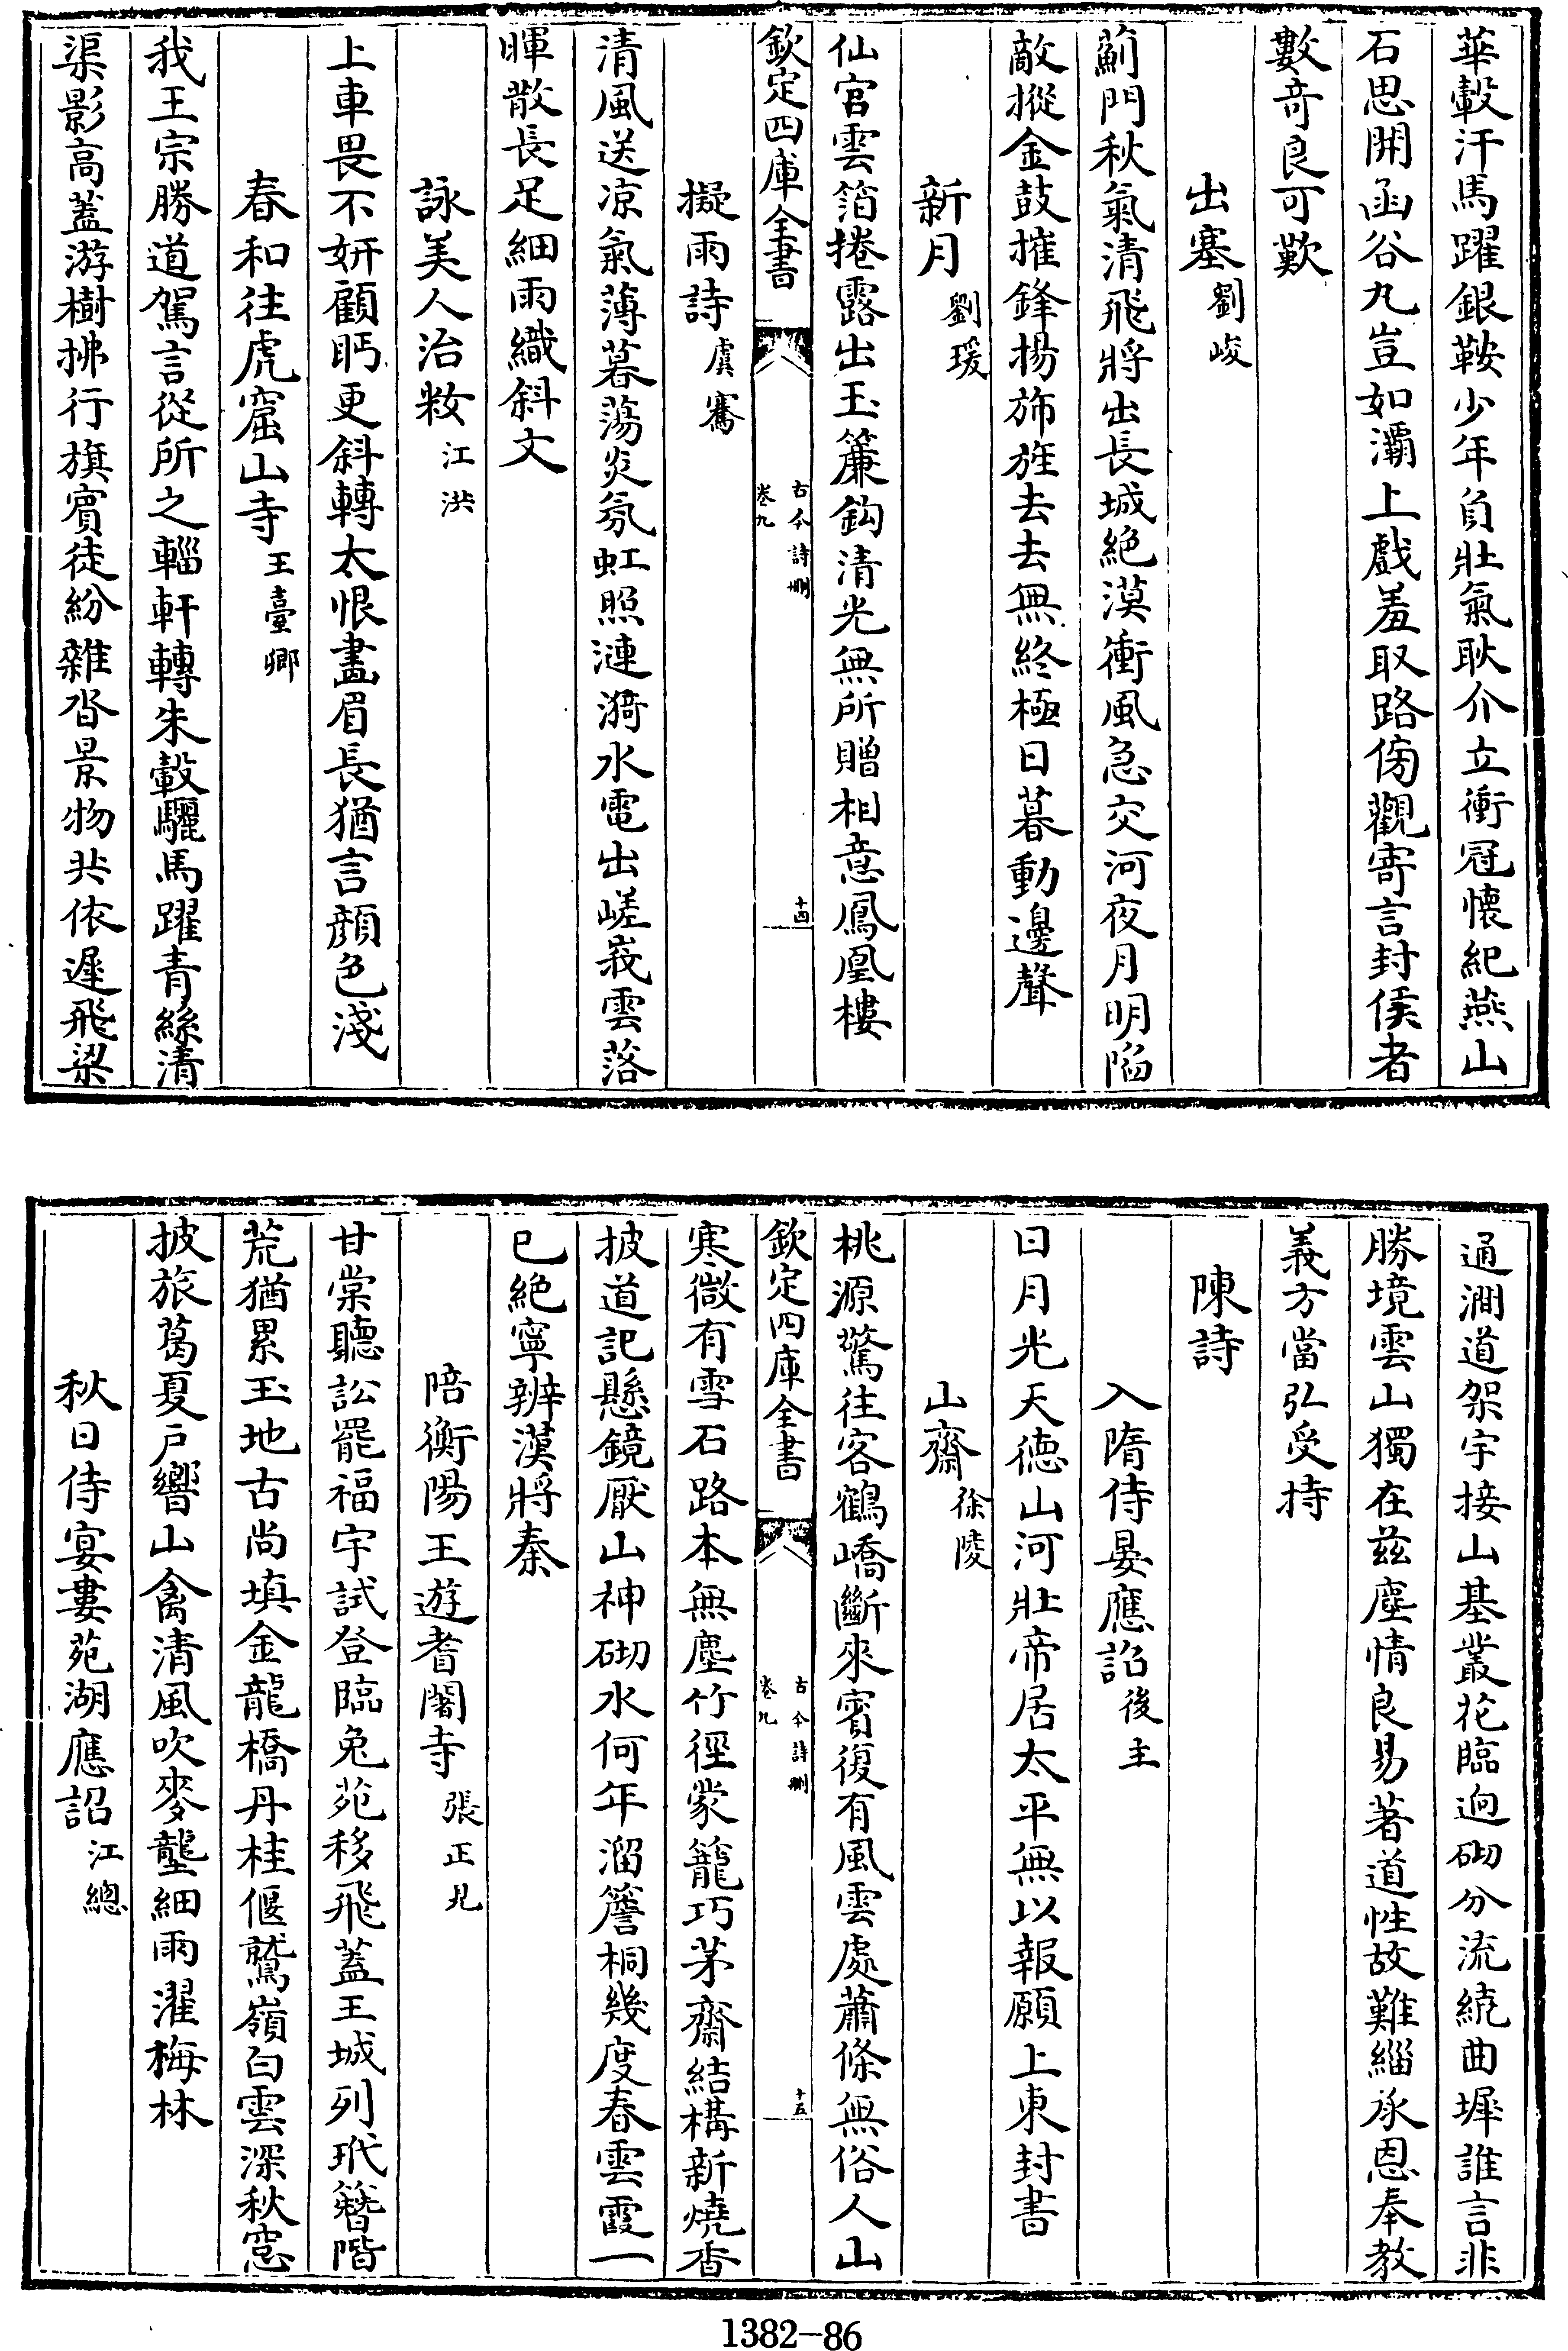 華轂汗馬躍銀鞍少年負壯氣耿介立衝冠懷紀燕山
石思開函谷丸豈如灞上戲羞取路傍觀寄言封侯者
數奇良可歎
出塞劉峻
薊門秋氣清飛將出長城絶漠衝風急交河夜月明陷
敵摐金鼓摧鋒揚斾旌去去無終極日暮動邊聲
新月劉瑗
仙宫雲箔捲露出玉簾鈎清光無所贈相意鳳凰樓
欽定四庫全書
古今詩刪
卷九
十四
擬雨詩虞騫
清風送凉氣薄暮蕩炎氛虹照漣漪水電出嵯峩雲落
暉散長足細雨織斜文
詠美人治粧江洪
上車畏不妍顧眄更斜轉太恨畫眉長猶言顔色淺
春和往虎窟山寺王臺卿
我王宗勝道駕言從所之輜軒轉朱轂驪馬躍青絲清
渠影高蓋游樹拂行旗賓徒紛雜沓景物共依遲飛梁
通澗道架宇接山基叢花臨迥砌分流繞曲墀誰言非
勝境雲山獨在兹塵情良易著道性故難緇承恩奉教
義方當弘受持
陳詩
入隋侍宴應詔後主
日月光天德山河壯帝居太平無以報願上東封書
山齋徐陵
桃源驚往客鶴嶠斷來賓復有風雲處蕭條無俗人山
欽定四庫全書
古今詩刪
卷九
十五
寒微有雪石路本無塵竹徑蒙籠巧茅齋結構新燒香
披道記懸鏡厭山神砌水何年溜簷桐幾度春雲霞一
已絶寧辨漢將秦
陪衡陽王遊耆闍寺張正見
甘棠聽訟罷福宇試登臨兔苑移飛蓋王城列玳簪階
荒猶累玉地古尚填金龍橋丹桂偃鷲嶺白雲深秋窓
披旅葛夏戸響山禽清風吹麥壟細雨濯梅林
秋日侍宴婁苑湖應詔江總
1382-86